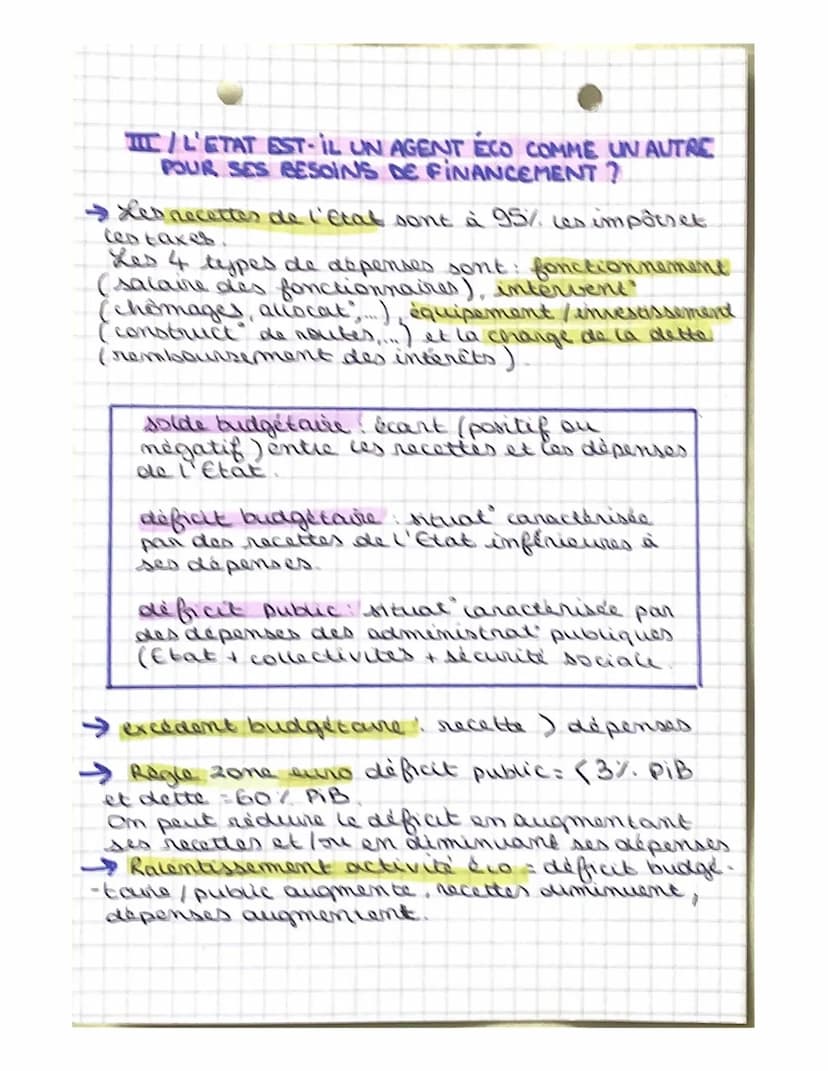 III / L'ETAT EST-IL UN AGENT ÉCO COMME UN AUTRE
POUR SES BESOINS DE FINANCEMENT ?
→ Les recettes de l'Etat sont à 95% les impôts et
les taxes.
Les 4 types de dépenses sont : fonctionnement
(salaire des fonctionnaires), intervent°
(chômages, allocat°,...), équipement / investissement
(construct° de routes,...) et la charge de la dette
(remboursement des intérêts).
solde budgétaire : écart (positif ou
négatif) entre les recettes et les dépenses
de l'Etat.
déficit budgétaire : situat° caractérisée
par des recettes de l'Etat inférieures à
ses dépenses.
déficit public : situat° caractérisée par
des dépenses des administrat° publiques
(Etat + collectivités + sécurité sociale.
→ excédent budgétaire : recette > dépenses
→ Règle zone euro déficit public = < 3% PiB
et dette = 60% PiB.
On peut réduire le déficit en augmentant
ses recettes et/ou en diminuant ses dépenses
→ Ralentissement activité éco = déficit budgé-
-taire / public augmente, recettes diminuent,
dépenses augmentent.